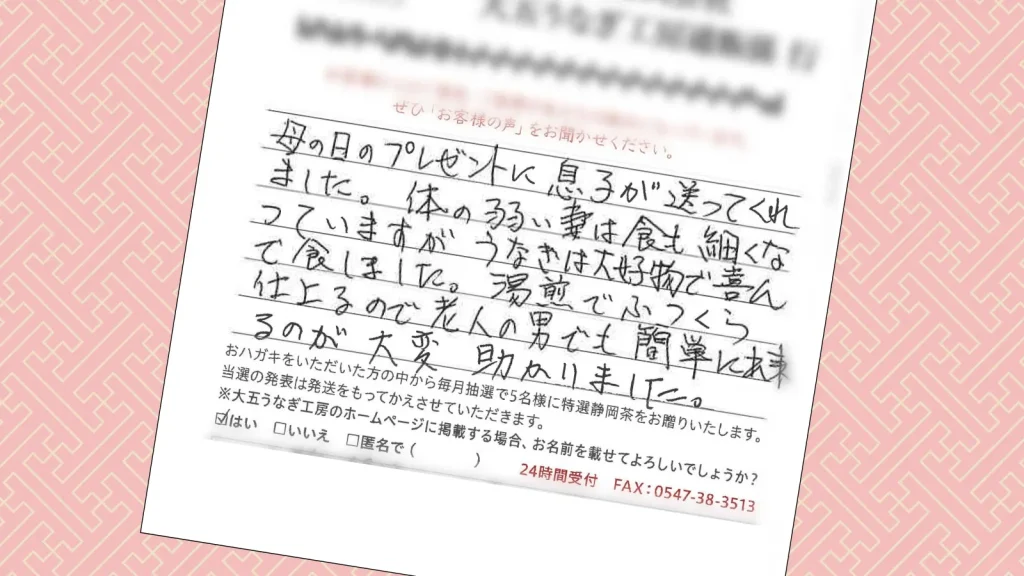 大五うなぎ工房通販部 行
ぜひ「お客様の声」をお聞かせください。
母の日のプレゼントに息子が送ってくれ
ました。体の弱い妻は食も細くな
っていますが うなぎは大好物で喜ん
で食しました。湯煎でふっくら
仕上るので老人の男でも簡単に出来
るのが大変助かりました。
おハガキをいただいた方の中から毎月抽選で5名様に特選静岡茶をお贈りいたします。
当選の発表は発送をもってかえさせていただきます。
※大五うなぎ工房のホームページに掲載する場合、お名前を載せてよろしいでしょうか?
☑はい □いいえ □匿名で( )
24時間受付 FAX:0547-38-3513